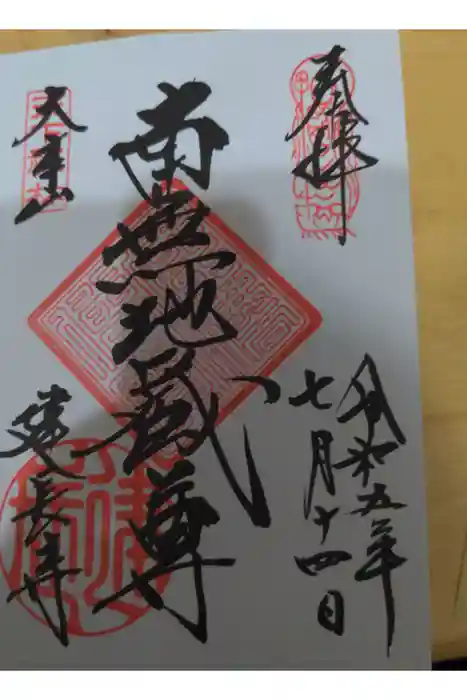 奉拝
令和五年
七月十四日
南無地蔵尊
大本山
建長寺